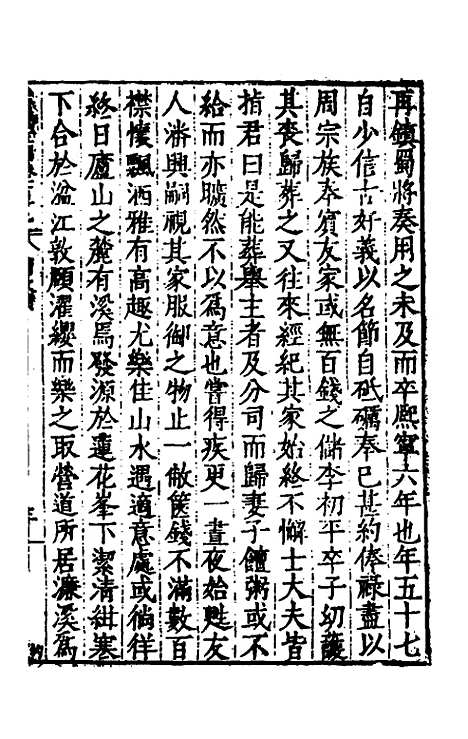 再鎭蜀將奏用之未及而卒熙寧六年也年五十七
自少信古好義以名節自砥礪奉己甚約俸祿盡以
周宗族奉賓友家或無百錢之儲李初平卒子幼護
其喪歸葬之又往來經紀其家始終不懈士大夫皆
指君曰是能葬舉主者及分司而歸妻子饘粥或不
給而亦曠然不以爲意也嘗得疾更一晝夜始甦友
人潘興嗣視其家服御之物止一敝篋錢不滿數百
襟懷飄洒雅有高趣尤樂佳山水遇適意處或徜徉
終日廬山之麓有溪焉發源於蓮花峯下潔清紺寒
下合於湓江敦頤濯纓而樂之取營道所居濂溪爲